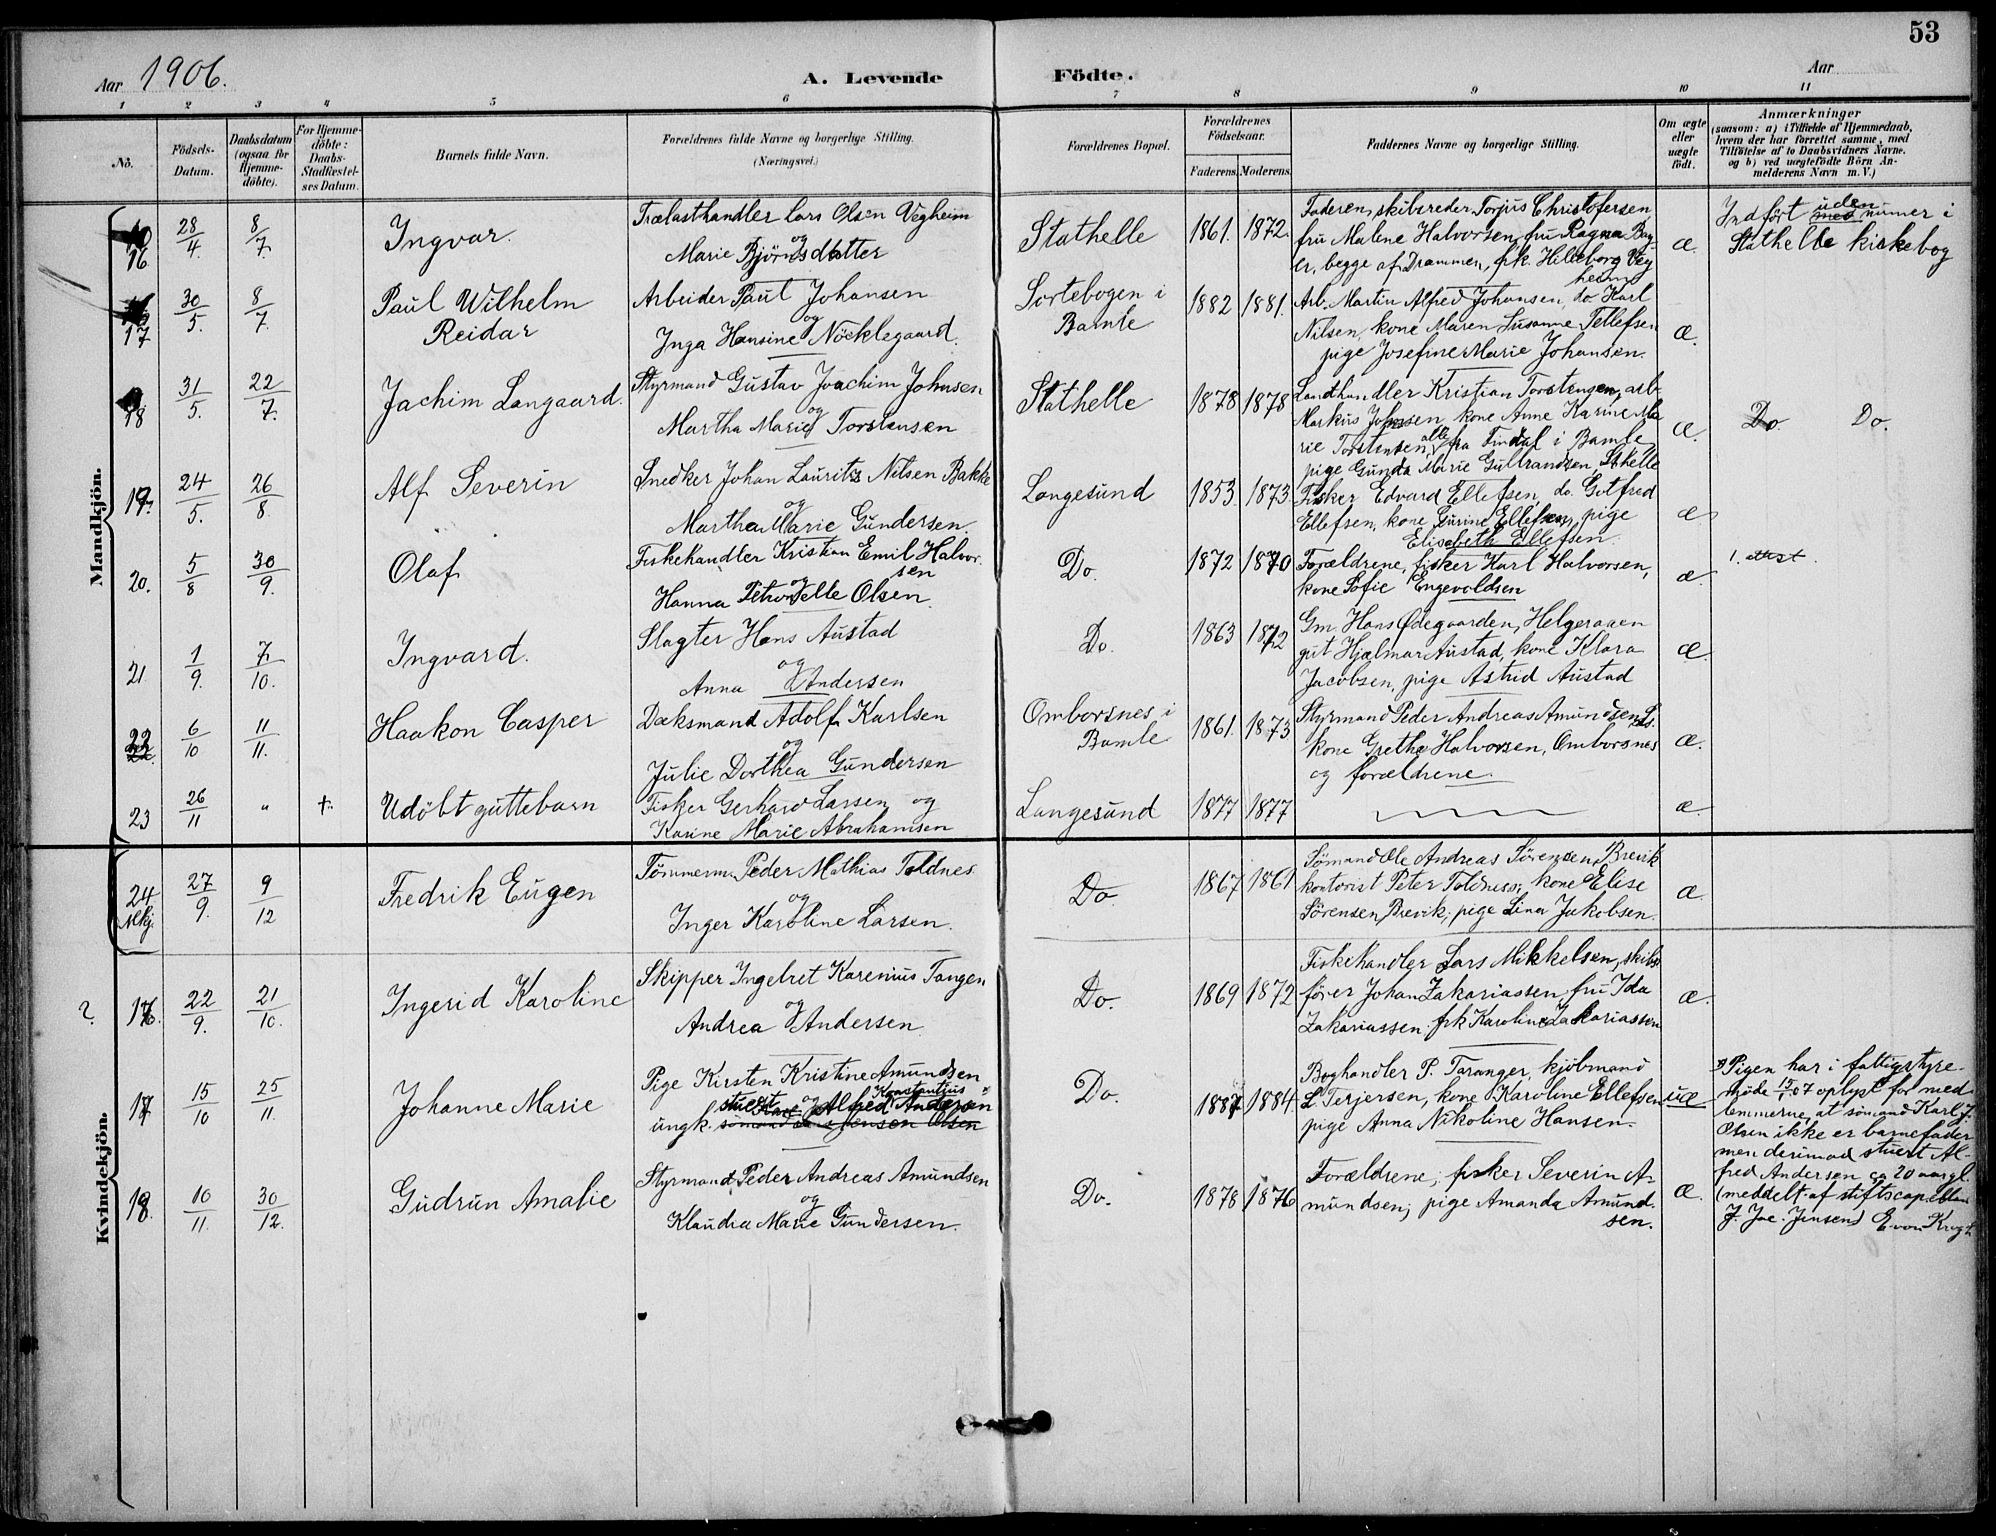 53
Aar 1906.
A. Levende Födte.
Aar
1 2 3 4 5 6 7 8 9 10 11
No.
Födsels-Datum.
Daabsdatum (ogsaa for Hjemme-döbte).
For Hjemme-döbte: Daabs-Stadfæstel-ses Datum.
Barnets fulde Navn.
Forældrenes fulde Navne og borgerlige Stilling. (Næringsvei.)
Forældrenes Bopæl.
Forældrenes Födselsaar.
Faderens. Moderens.
Faddernes Navne og borgerlige Stilling.
Om ægte eller uægte födt.
Anmærkninger
(saasom: a) i Tilfælde af Hjemmedaab,
hvem der har forrettet samme, med
Tilföielse af to Daabsvidners Navne.
og b) ved uægtefödte Börn An-
melderens Navn m. V.)
Mandkjön.
16 28/4. 8/7. Ingvar.
Trælasthandler Lars Olsen Vegheim
og
Marie Björnsdatter
Stathelle 1861. 1872.
Faderen, skibsreder Torjus Christofersen,
fru Malene Halvorsen, fru Ragna Bay-
er, begge af Drammen, frk. Hilleborg Veg
heim
æ.
Indfört uden med numer i
Stathelle kirkebog
17 30/5. 8/7. Paul Wilhelm
Reidar
Arbeider Paul Johansen
og
Inga Hansine Nöcklegaard.
Sortebogen i
Bamle
1882 1881.
Arb. Martin Alfred Johansen, do Karl
Nilsen, kone Maren Susanne Tellefsen
pige Josefine Marie Johansen.
æ.
18 31/5. 22/7. Jachim Langaard.
Styrmand Gustav Joachim Johnsen
og
Martha Marie Torstensen
Stathelle 1878 1878
Landhandler Kristian Torstensen, arb.
Markus Johnsen kone Anne Karine Ma
rie Torstensen, alle fra Findal i Bamle
pige Gunda Marie Gulbrandsen, Sthelle
æ. Do Do.
19. 24/5. 26/8. Alf Severin
Snedker Johan Lauritz Nilsen Bakke
og
Marthea Marie Gundersen
Langesund 1853. 1873.
Fisker Edvard Ellefsen, do. Gotfred
Ellefsen, kone Gurine Ellefsen, pige
Elisabeth Ellefsen.
æ
20. 5/8 30/9. Olaf
Fiskehandler Kristian Emil Halvor-
sen
og
Hanna Petronelle Olsen
Do. 1872 1870
Forældrene, fisker Karl Halvorsen,
kone Sofie Engevoldsen
æ. 1. attest.
21 1/9. 7/10. Ingvard.
Slagter Hans Austad
og
Anna Andersen
Do. 1863 1872
Gm. Hans Ødegaarden, Helgeraaen
gut Hjalmar Austad, kone Klara
Jacobsen, pige Astrid Austad
æ.
22 22. 6/10 11/11. Haakon Casper
Dæksmand Adolf Karlsen
og
Julie Dorthea Gundersen
Omborsnes i
Bamle
1861. 1873
Styrmand Peder Andreas Amundsen, Ls.
kone Grethe Halvorsen, Omborsnes
og forældrene.
æ.
23 26/11 " †. Udöbt guttebarn
Fisker Gerhard Larsen og
Karine Marie Abrahamsen
Langesund 1877 1877 æ.
24 Mkj. 27/9. 9/12 Fredrik Eugen
Tömmerm. Peder Mathias Toldnes
og
Inger Karoline Larsen.
Do 1867 1861
Sömand Ole Andreas Sörensen, Brevik
kontorist Peter Toldness; kone Elise
Sörensen, Brevik; pige Lina Jakobsen.
æ
Kvindekjön.
? 16. 22/9. 21/10. Ingerid Karoline
Skipper Ingebret Karenius Tangen
og
Andrea Andersen
Do. 1869 1872
Fiskehandler Lars Mikkelsen, skibs
förer Johan Zakariassen, fru Ida
Zakariassen, frk Karoline Zakariassen
æ.
17 15/10 25/11. Johanne Marie
Pige Kirsten Kristine Amundsen
og Konstantius
stuert Alfred Andersen
ungk. sömand Jensen Olsen
Do. 1887 1884
Boghandler P. Taranger, kjöbmand
L Terjersen, kone Karoline Ellefsen
pige Anna Nikoline Hansen.
uæ
Pigen har i fattigstyre-
möde 15/1.07 oplyst for med
lemmerne, at sömand Karl J.
Olsen ikke er barnefader
men derimod stuert Al-
fred Andersen ca 20 aar gl.
(meddelt af stiftscapellan
J. Jac. Jensen) E. von Krogh
18. 10/11. 30/12. Gudrun Amalie
Styrmand Peder Andreas Amundsen
og
Klaudia Marie Gundersen.
Do. 1878 1876
Forældrene; fisker Severin A-
mundsen; pige Amanda Amund-
sen.
æ.